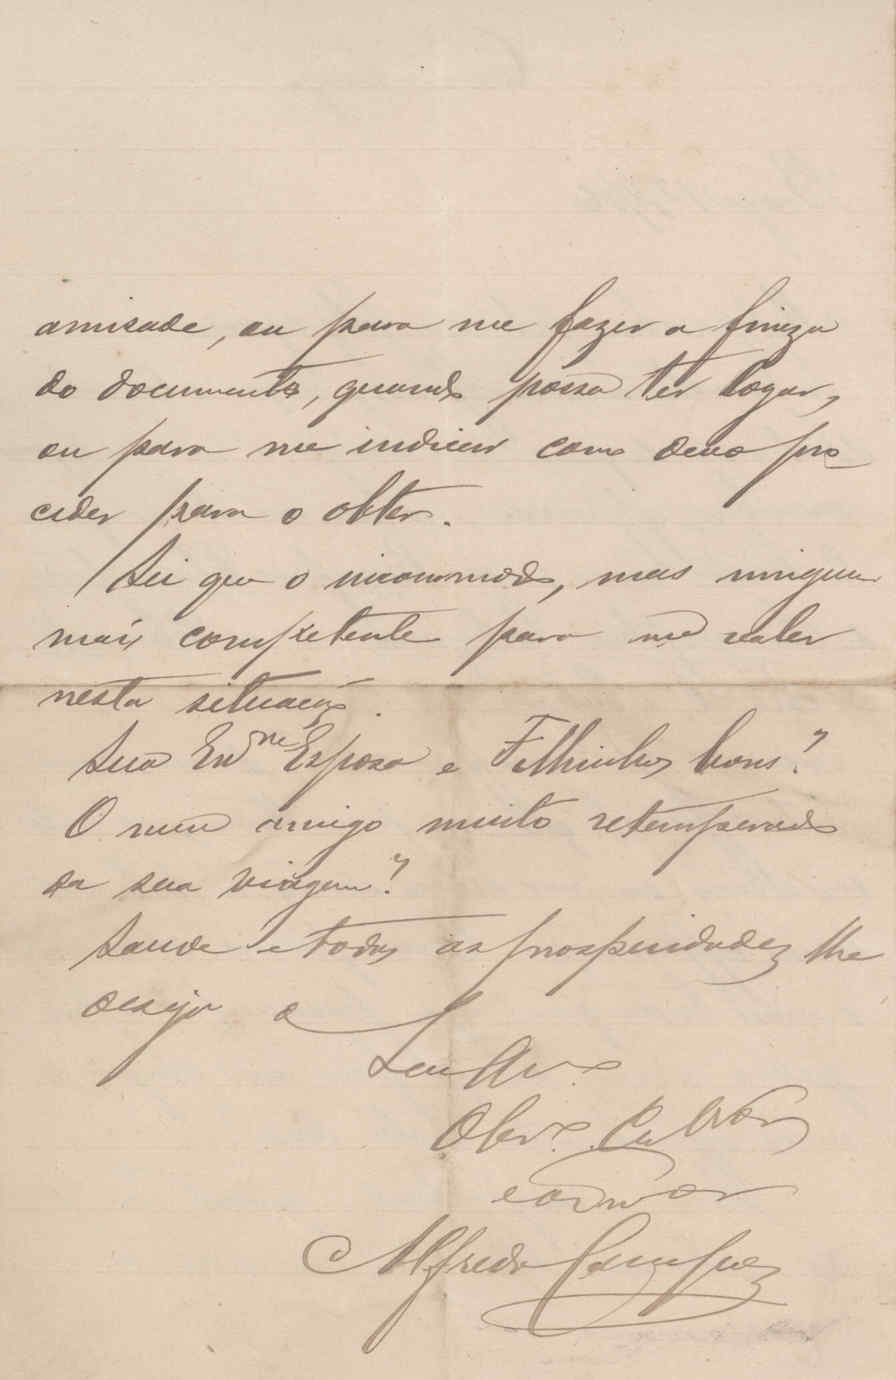 amisade, ou para me fazer a fineza
do documento, quando possa ter logar,
ou para me indicar como devo pro
ceder para o obter.
Sei que o incommodo, mas ninguem
mais competente para me valer
nesta situação.
Sua Esposa e Filhinhos bons?
O meu amigo muito retemperado
da sua viagem?
Saude e todas as prosperidades lhe
deseja o
Seu
Obrdo.
Alfredo Campos